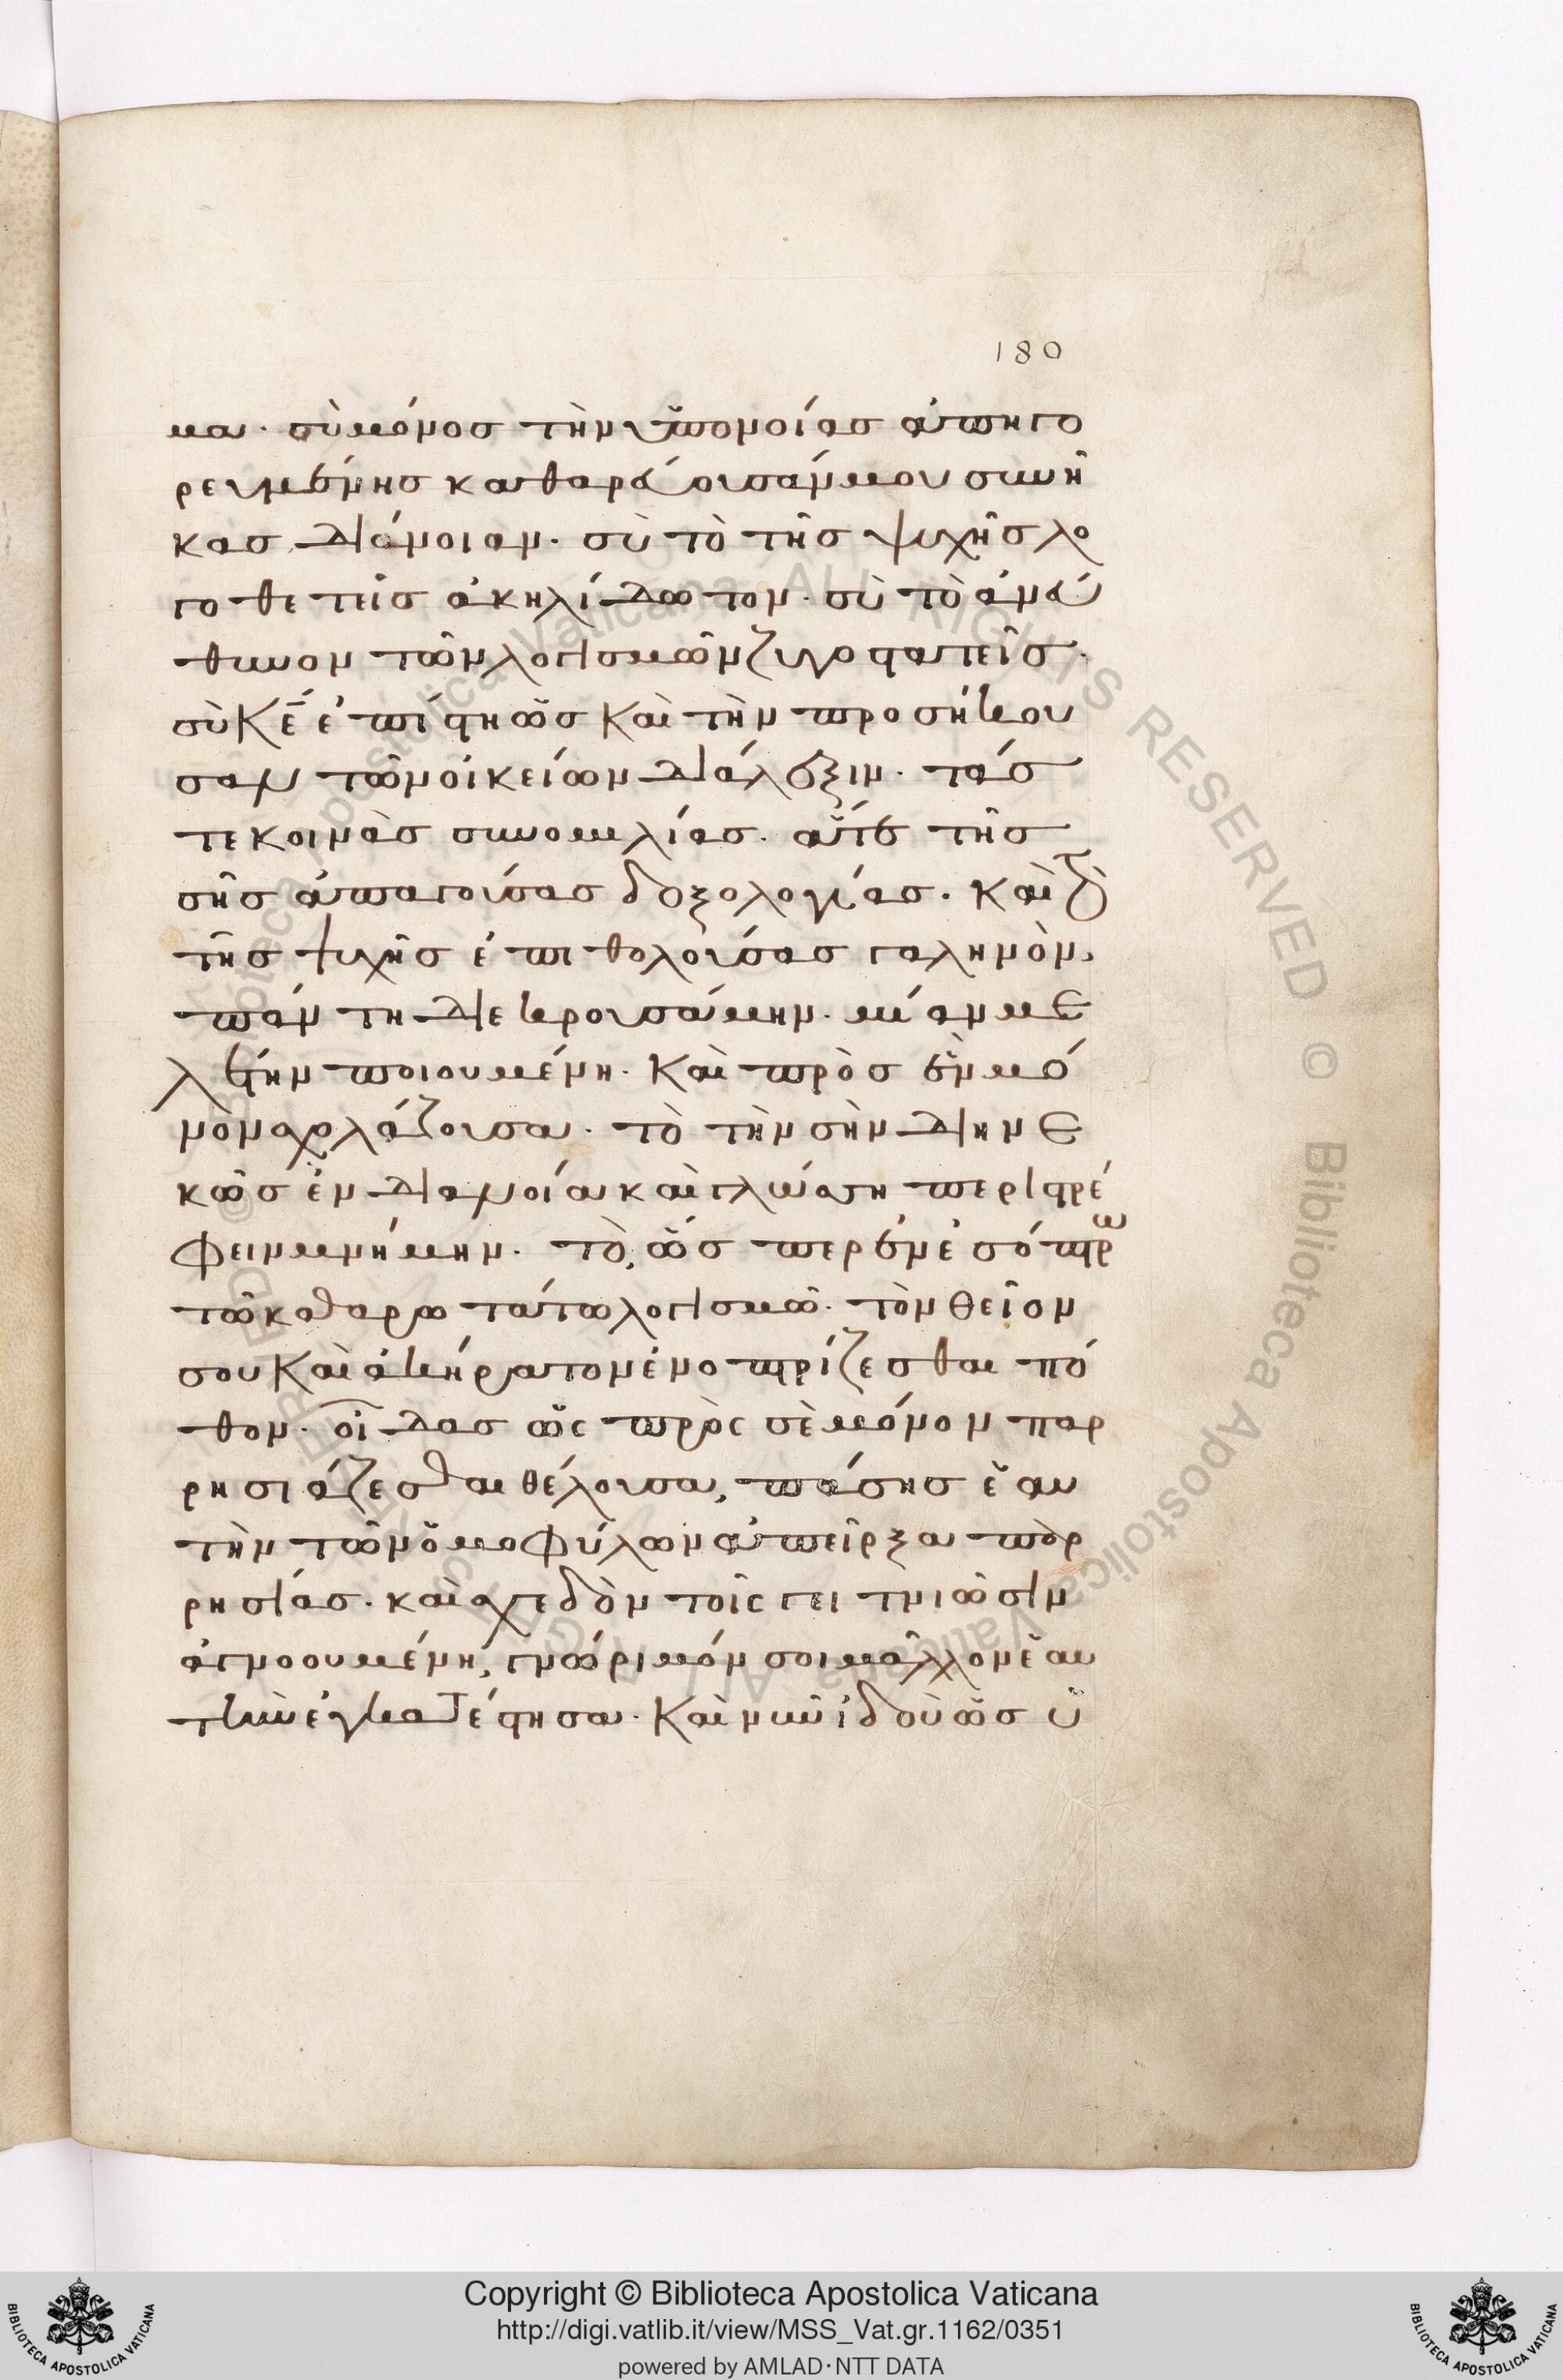 180
μαι· σὺ μόνος τὴν ὑπονοίας ἀπηγο
ρευμένης καθαρεύουσάν μου συνῆ
κας διάνοιαν· σὺ τὸ τῆς ψυχῆς λο
γοθετεῖς ἀκηλίδωτον· σὺ τὸ ἀνεύ
θυνον τῶν λογισμῶν ζυγοστατεῖς·
σὺ κε ἐπίστη ὡς καὶ τὴν προσήκου
σαν τῶν οἰκείων διάλεξιν· τάς
τε κοινὰς συνομιλίας· αἵτε τῆς
σῆς ἀπαγούσας δοξολογίας· καὶ τὸ
τῆς ψυχῆς ἐπιθολούσας γαληνὸν,
πάντη διεκρουσάμην· μίαν με
λέτην ποιουμένη· καὶ πρὸς ἓν μό
νον σχολάζουσα· τὸ τὴν σὴν διηνε
κῶς ἐν διανοίαι καὶ γλώσση περιφέ
ρειν μνήμην· τὸ, ὥσπερ ἐν ἐσόπτρω
τῶ καθαρωτάτω λογισμῶ· τὸν θεῖον
σου καὶ ἀκήρατον ἐνοπτρίζεσθαι πό
θον· οἶδας ὡς πρὸς σὲ μόνον παρ
ρησιάζεσθαι θέλουσα, πάσης ἐαυ
τὴν τῶν ὁμοφύλων ἀπεῖρξα παρ
ρησίας· καὶ σχεδὸν τοῖς γειτνιῶσιν
ἀγνοουμένη, γνώριμόν σοι μᾶλλον ἐαυ
τὴν ἐγκατέστησα· καὶ νῦν ἰδοὺ ὡς ὑ
Copyright © Biblioteca Apostolica Vaticana
http://digi.vatlib.it/view/MSS_Vat.gr.1162/0351
powered by AMLAD·NTT DATA
BIBLIOTECA APOSTOLICA VATICANA
BIBLIOTECA APOSTOLICA VATICANA